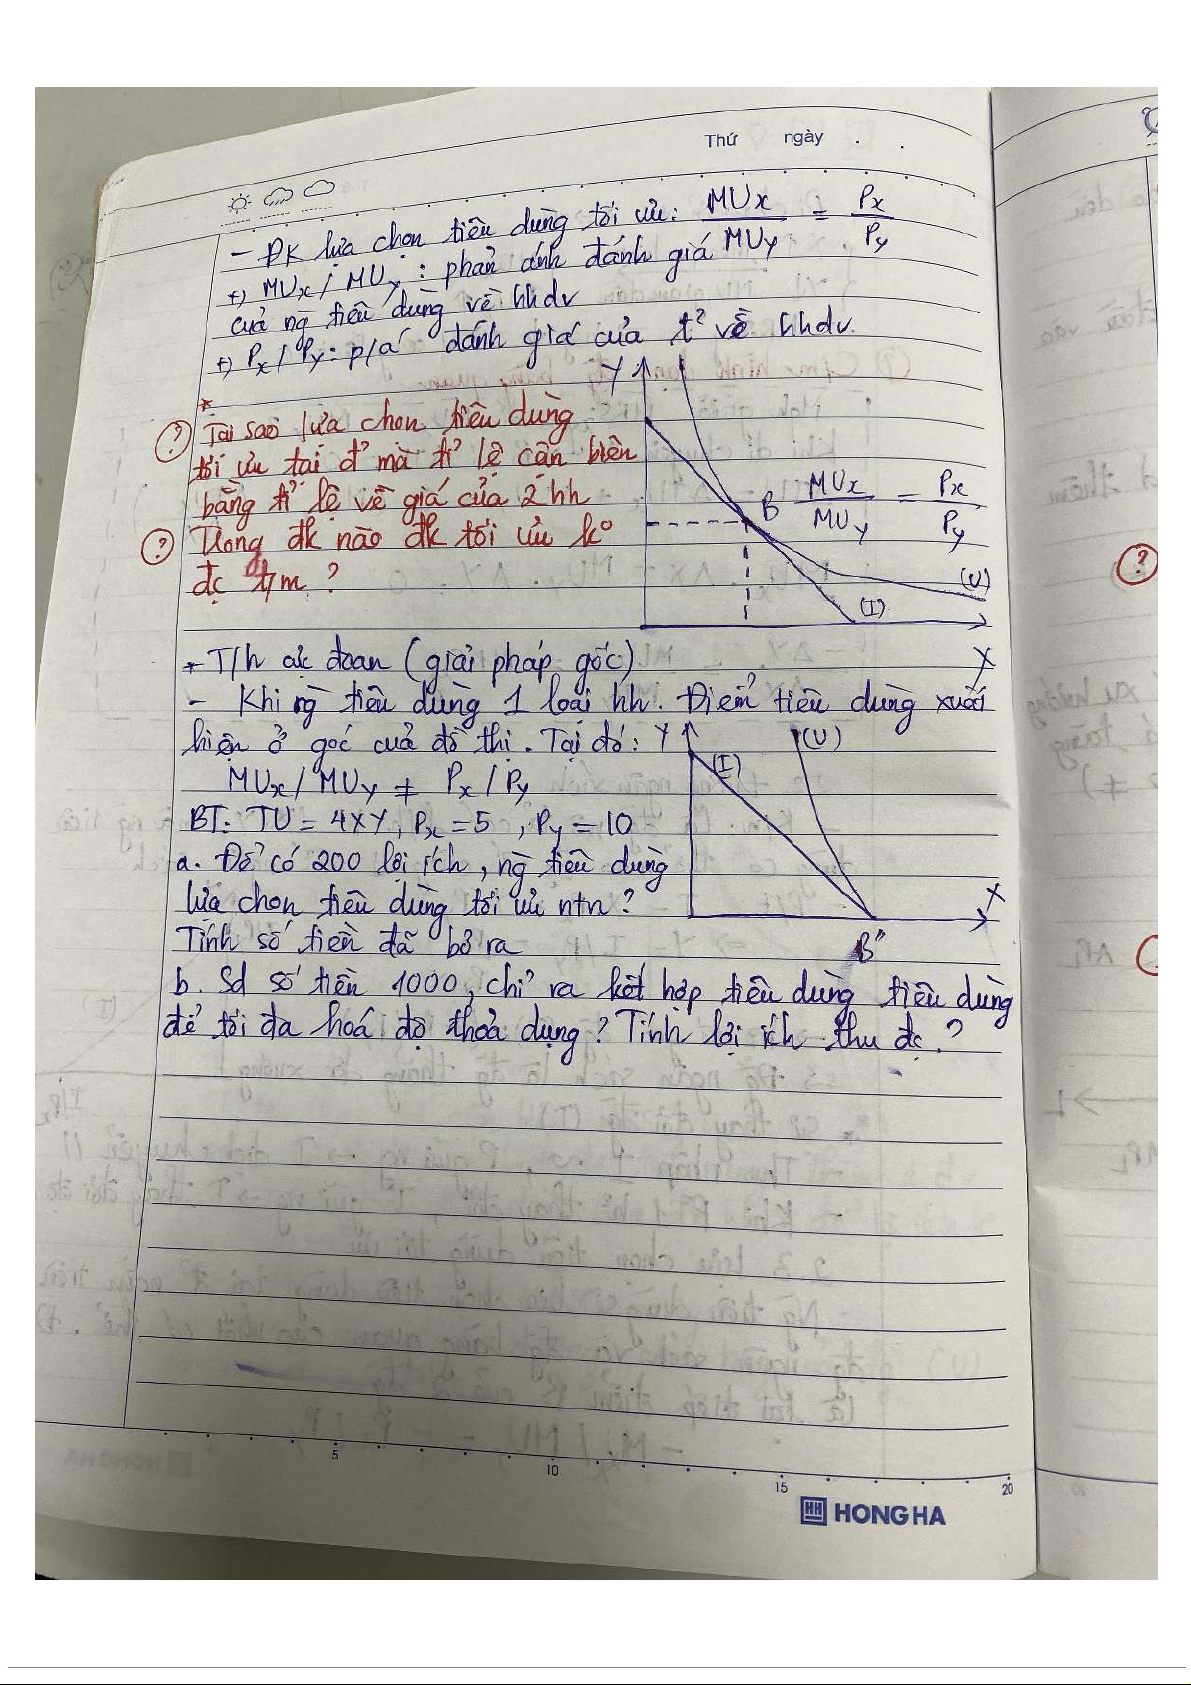 Thứ ngày
- ĐK lựa chọn tiêu dùng tối ưu: MUx / MUy = Px / Py
+) MUx / MUy : phản ánh đánh giá
của ng tiêu dùng về hhdv
+) Px / Py : p/á đánh giá của t² về hhdv
*
? Tại sao lựa chọn tiêu dùng
tối ưu tại đ' mà tỉ lệ cận biên
bằng tỉ lệ về giá của 2 hh
? Trong đk nào đk tối ưu k°
đc t/m ?
Y
B MUx / MUy = Px / Py
(U)
(I)
X
* T/h cực đoan (giải pháp góc)
- Khi ng tiêu dùng 1 loại hh. Điểm tiêu dùng xuất
hiện ở góc cuả đồ thị. Tại đó:
MUx / MUy ≠ Px / Py
Y
(U)
(I)
X
B"
BT: TU = 4XY, Px = 5, Py = 10
a. Để có 200 lợi ích, ng tiêu dùng
lựa chọn tiêu dùng tối ưu ntn?
Tính số tiền đã bỏ ra
b. Sd số tiền 1000, chỉ ra kết hợp tiêu dùng tiêu dùng
để tối đa hoá độ thoả dụng? Tính lợi ích thu đc.?
5 10 15 20
HH HONG HA